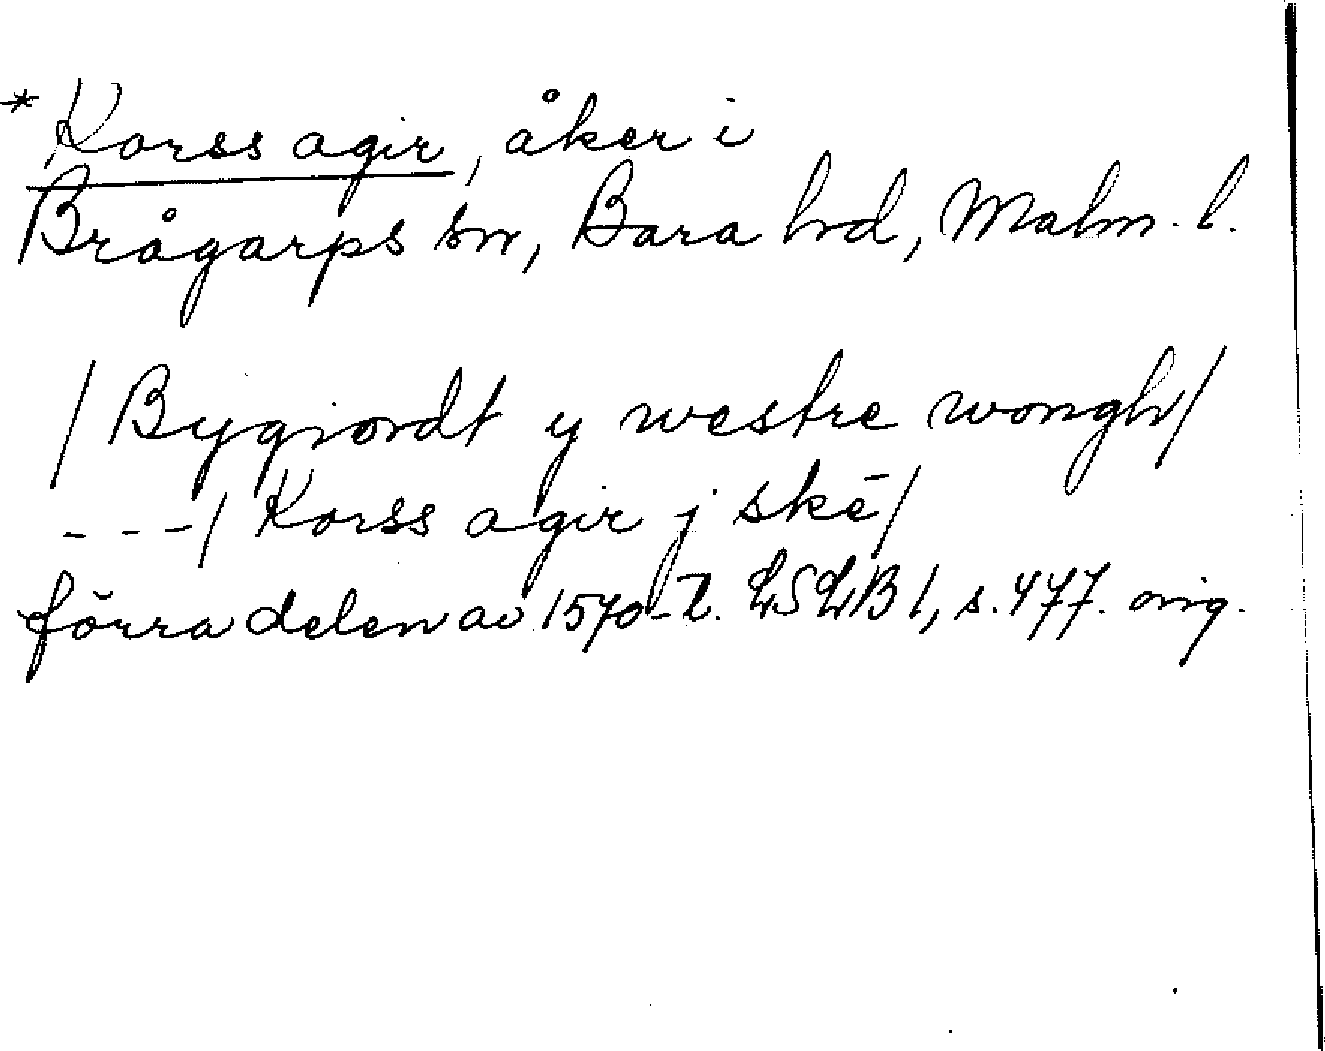 * Korss agir, åker i
Brågarps sn, Bara hd, Malm. l.
/ Bygiordt y westre wongh/
- - -/ Korss agir j skē/
förra delen av 1570-t. LSLB 1, s. 477. orig.